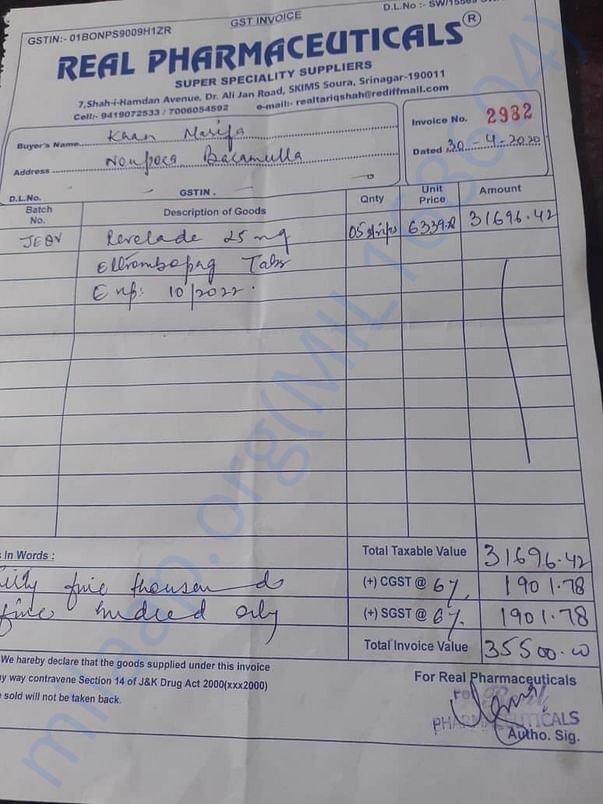 GSTIN:- 01BONPS9009H1ZR
GST INVOICE
D.L.No :- SW/
REAL PHARMACEUTICALS®
SUPER SPECIALITY SUPPLIERS
7,Shah-i-Hamdan Avenue, Dr. Ali Jan Road, SKIMS Soura, Srinagar-190011
Cell:- 9419072533 / 7006054592 e-mail:- realtariqshah@rediffmail.com
Buyer's Name Khan
Address Baramulla
Invoice No. 2982
Dated 30-4-2020
D.L.No. GSTIN .
Batch No. Description of Goods Qnty Unit Price Amount
Revelade 25 mg 05 strips 31696.42
Eltrombopag Tabs
Exp: 10/2022
s In Words :
fine thousands
five hundred only
Total Taxable Value 31696.42
(+) CGST @ 6% 1901.78
(+) SGST @ 6% 1901.78
Total Invoice Value 35500.00
We hereby declare that the goods supplied under this invoice
y way contravene Section 14 of J&K Drug Act 2000(xxx2000)
sold will not be taken back.
For Real Pharmaceuticals
PHARMACEUTICALS
Autho. Sig.